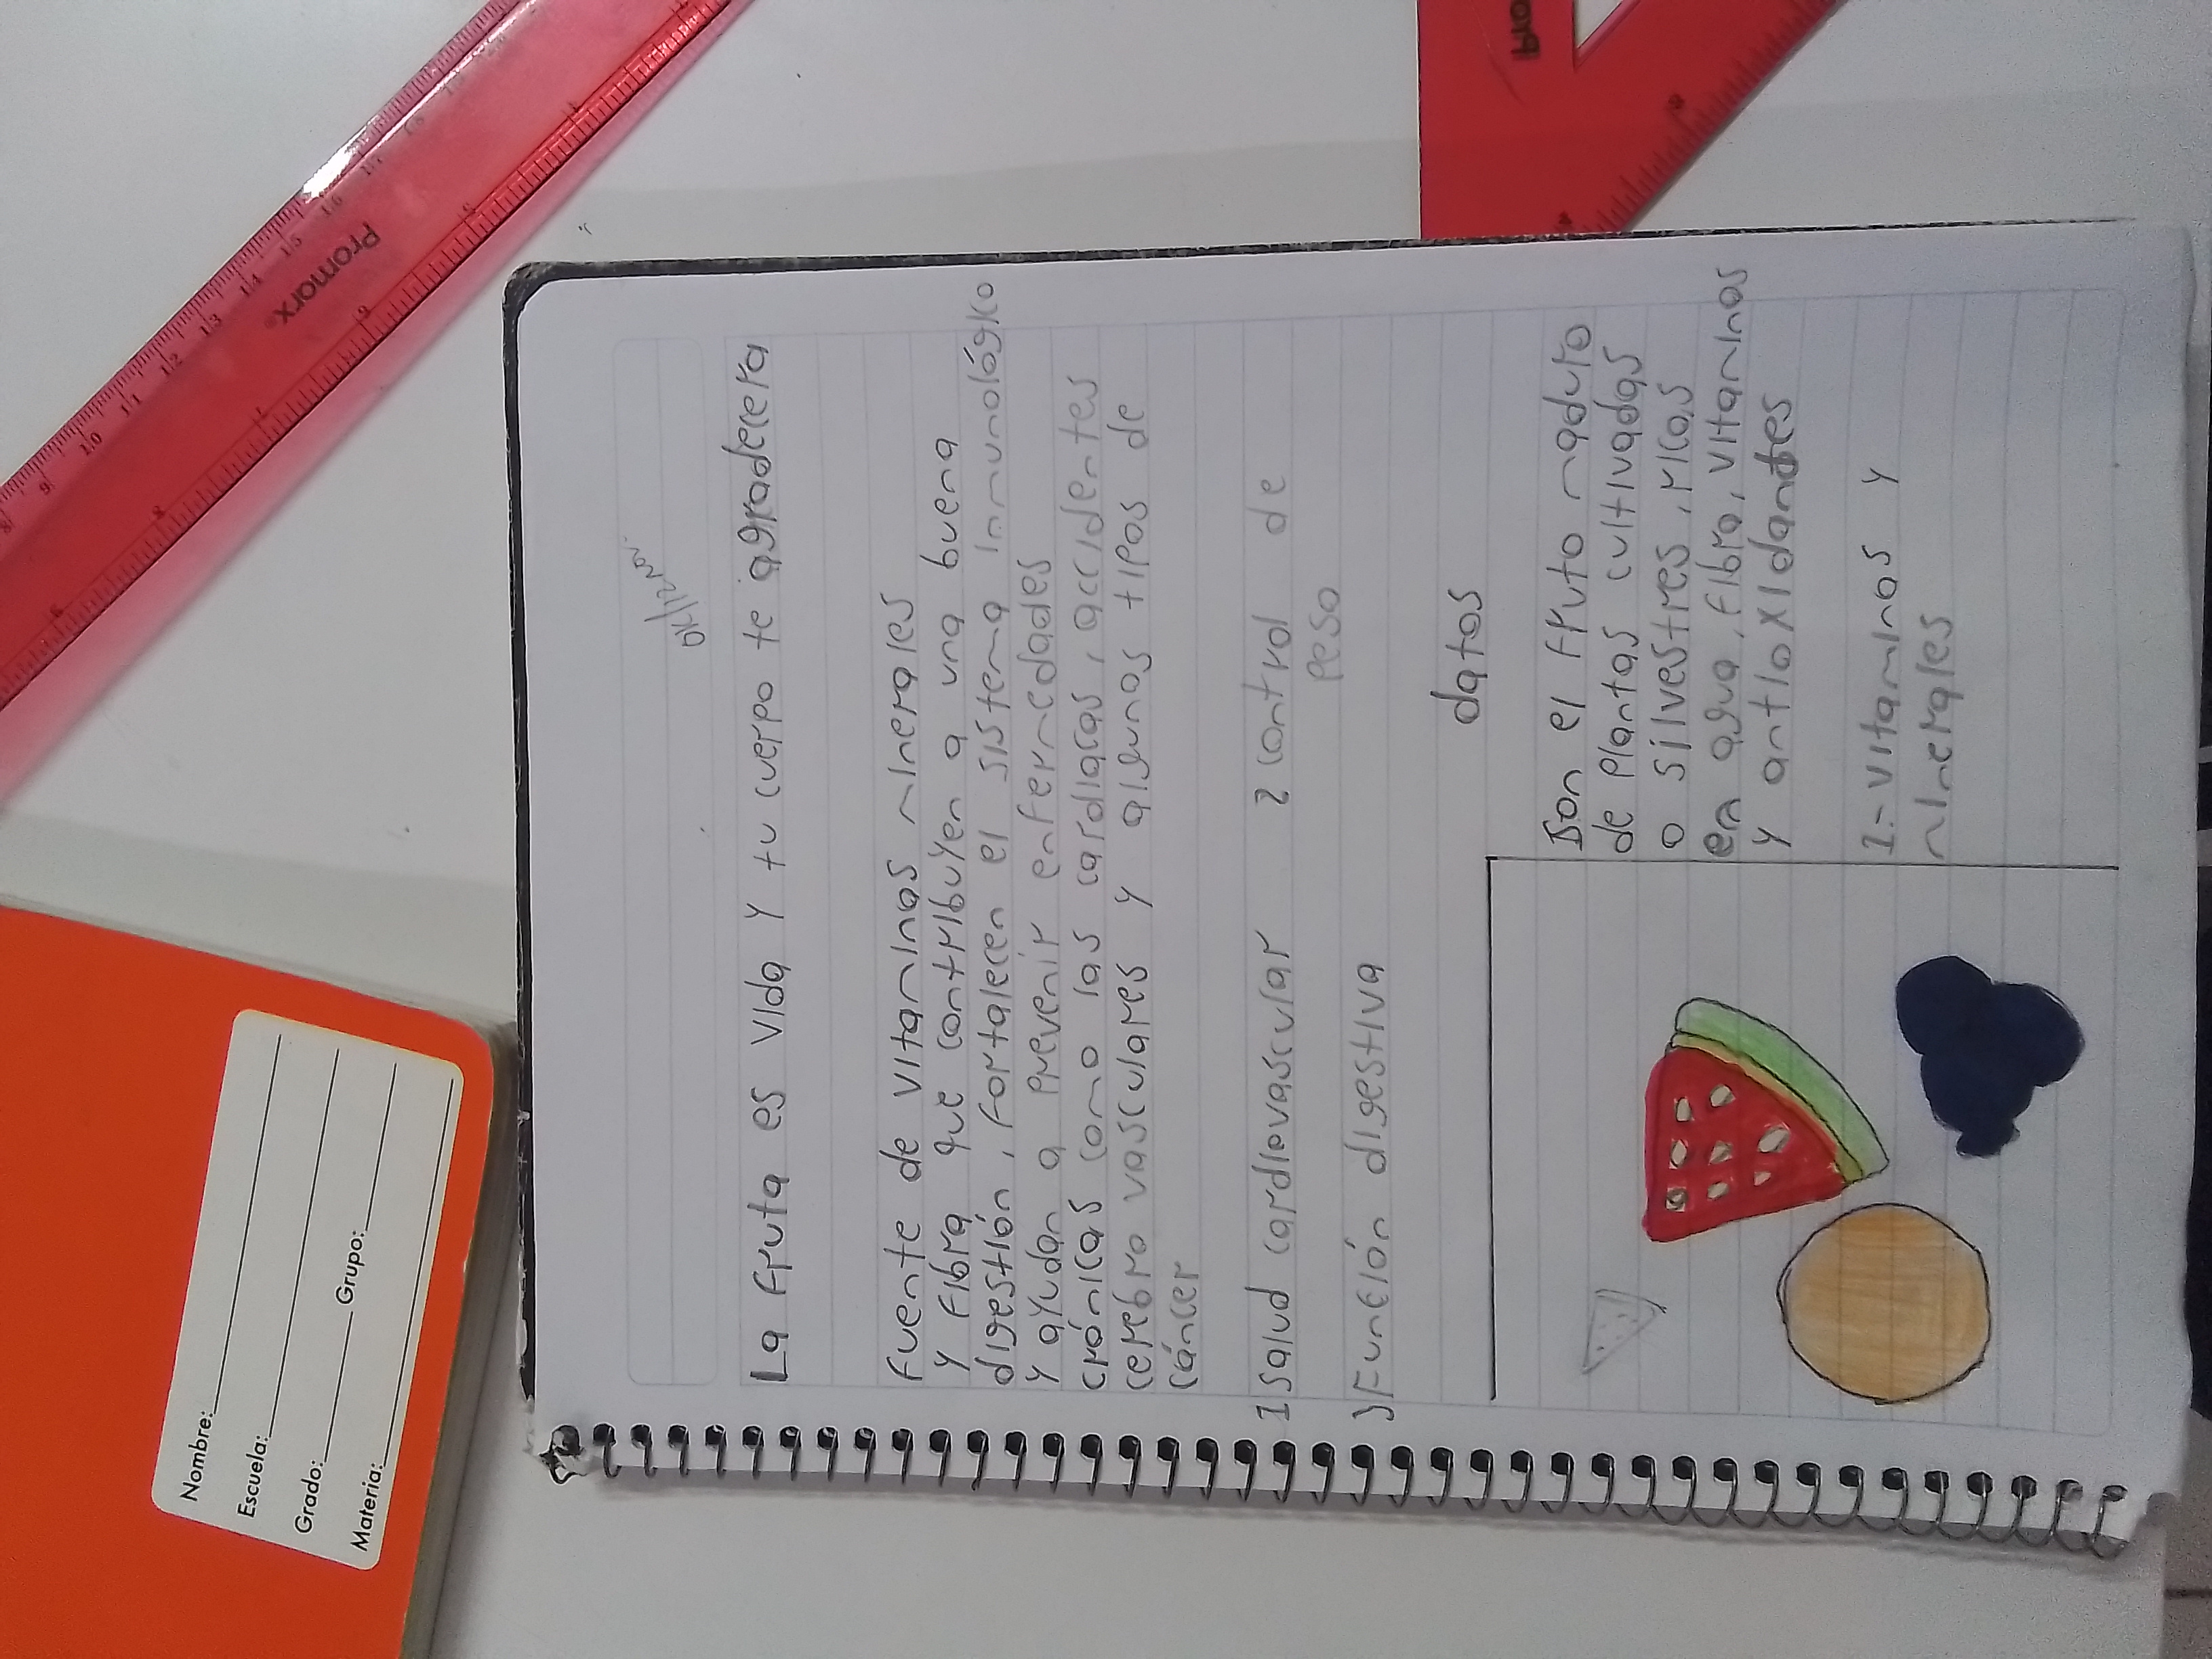 La fruta es vida y tu cuerpo te agradecera
fuente de vitaminas minerales
y fibra que contribuyen a una buena
digestión, fortalecen el sistema inmunológico
y ayudan a prevenir enfermedades
crónicas como las cardiacas, accidentes
cerebro vasculares y algunos tipos de
cáncer
1 salud cardiovascular 2 control de
peso
3 Función digestiva
datos
Son el fruto maduro
de plantas cultivadas
o silvestres, ricas
en agua, fibra, vitaminas
y antioxidantes
1.- vitaminas y
minerales
Nombre:
Escuela:
Grado: Grupo:
Materia:
Promarx®
8 9 10 11 12 13 14 15 16 17